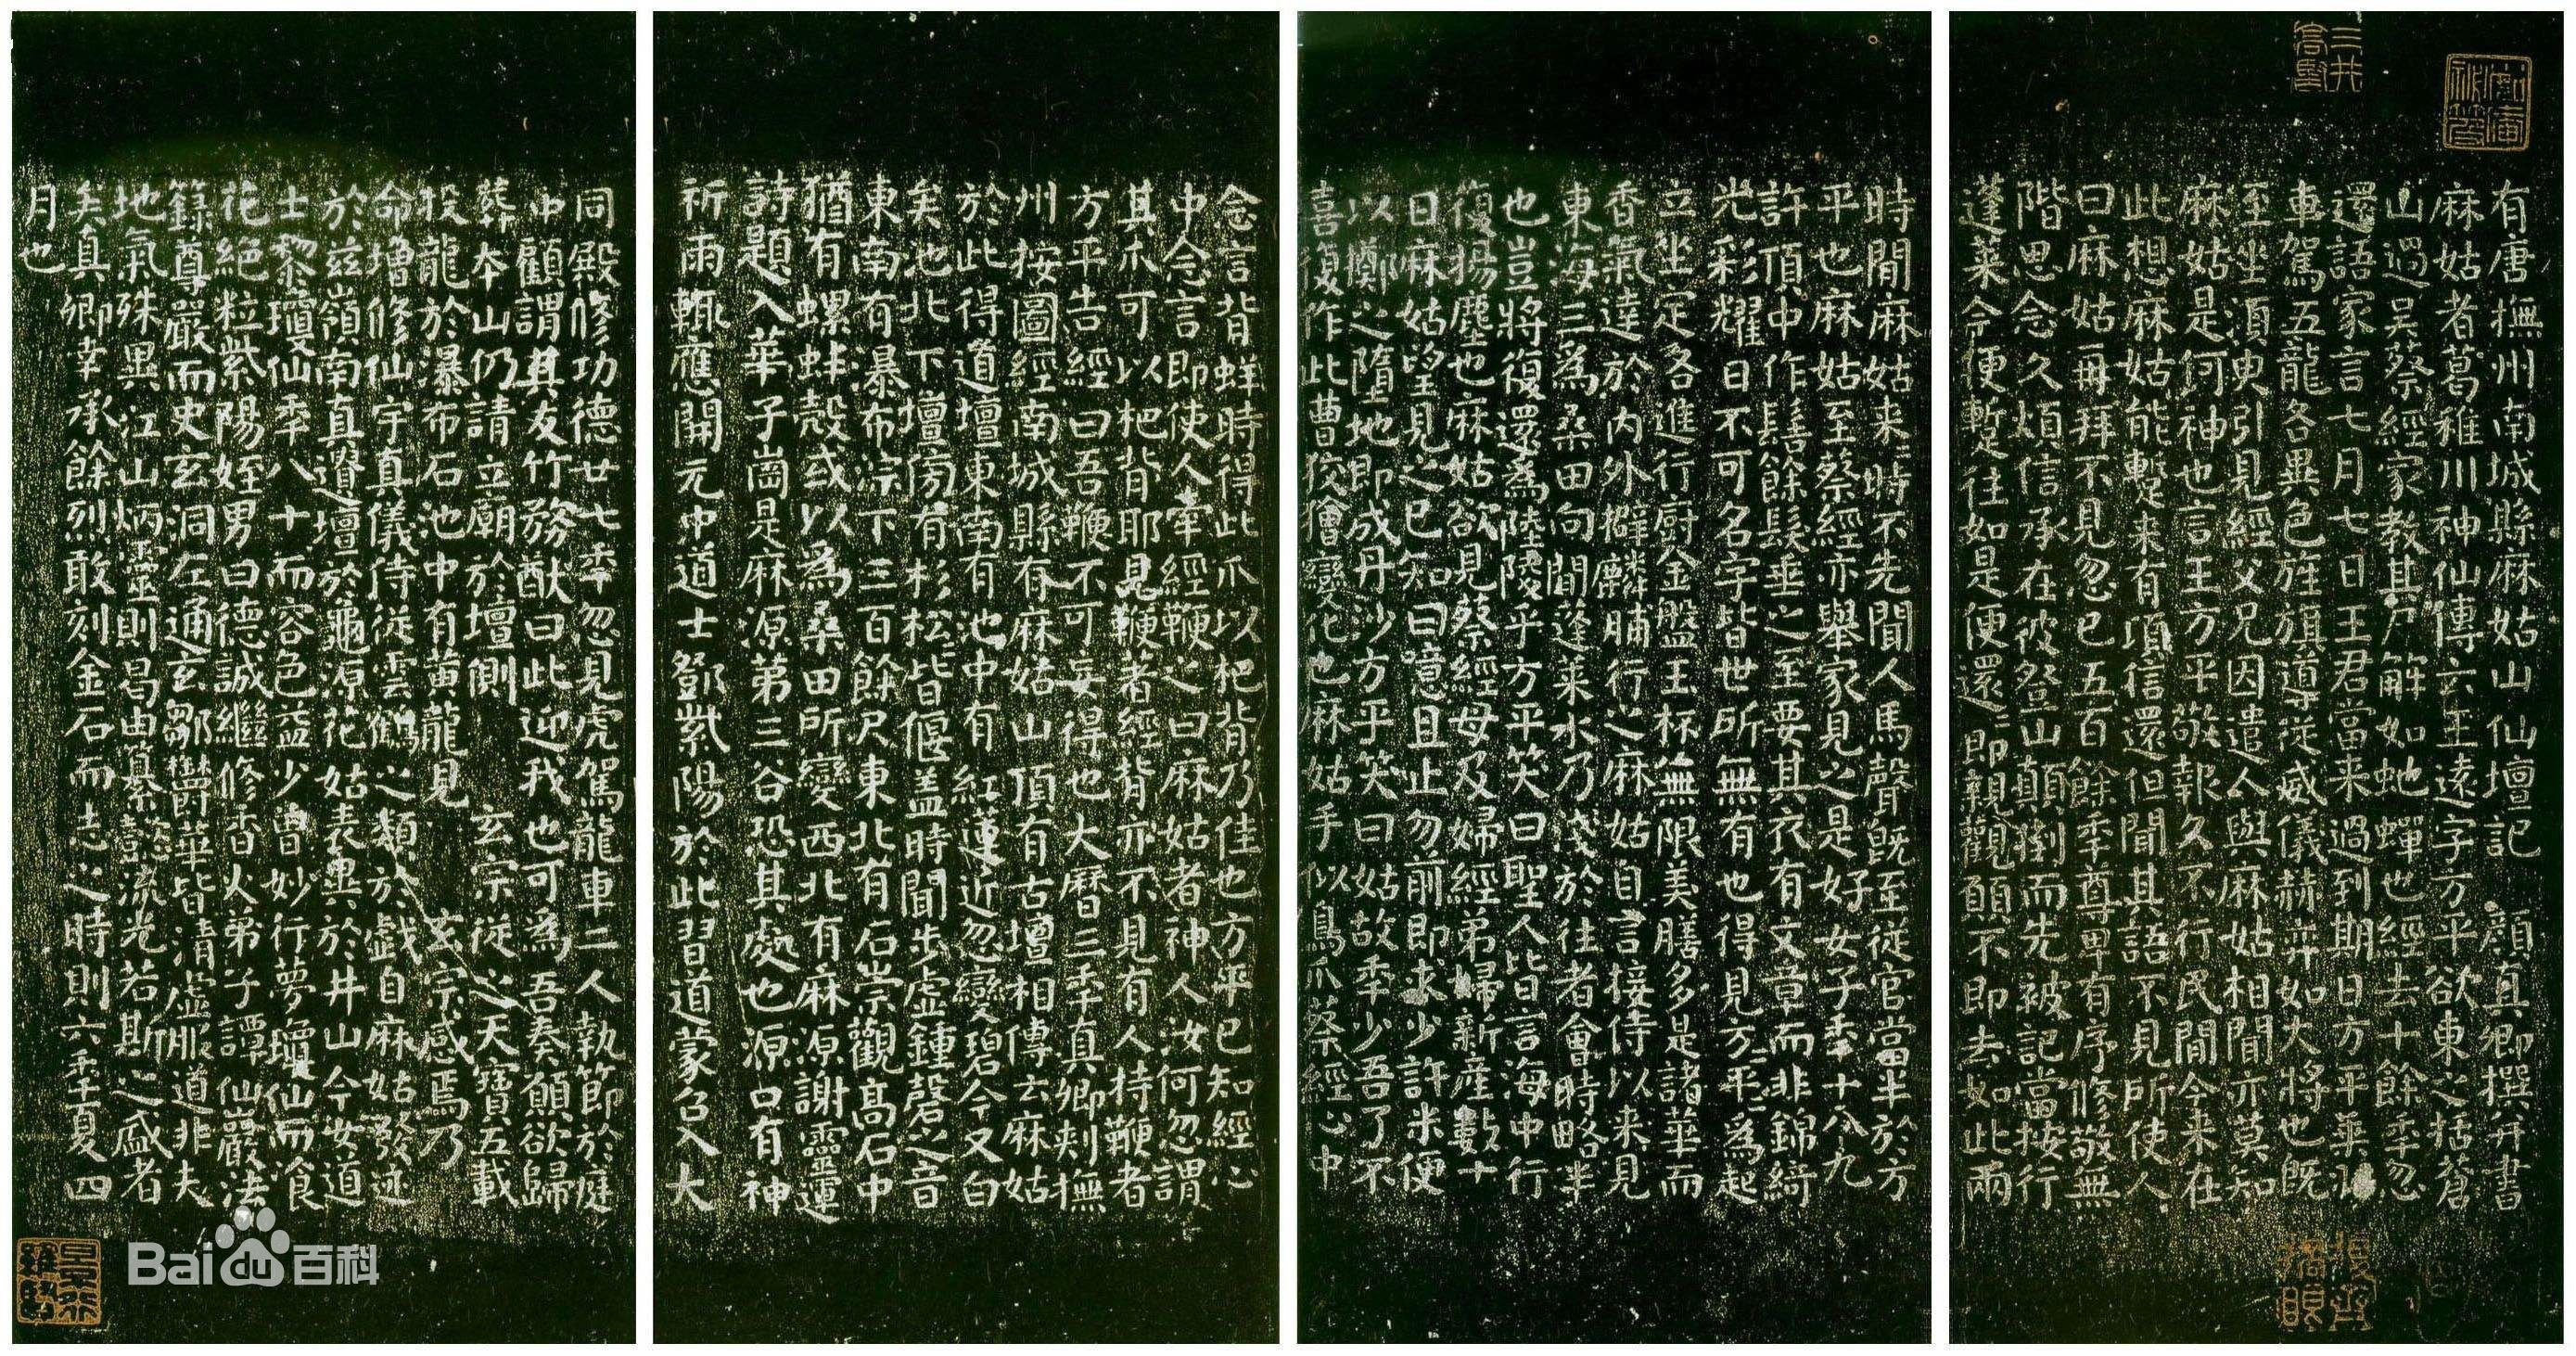 有唐撫州南城縣麻姑山仙壇記 顏真卿撰并書
麻姑者葛稚川神仙傳云王遠字方平欲東之括蒼
山過吳蔡經家教其尸解如蛇蟬也經去十餘年忽
還語家言七月七日王君當来過到期日方平乘羽
車駕五龍各異色旌旗導從威儀赫弈如大將也既
至坐須臾引見經父兄因遣人與麻姑相聞亦莫知
麻姑是何神也言王方平敬報久不行民閒今来在
此想麻姑能蹔来有頃信還但聞其語不見所使人
曰麻姑再拜不見忽已五百餘年尊卑有序修敬無
階思念久煩信承在彼登山顛倒而先被記當按行
蓬萊今便蹔往如是便還還即親觀願不即去如此兩
時閒麻姑来時不先聞人馬聲既至從官當半於方
平也麻姑至蔡經亦舉家見之是好女子年十八九
許頂中作髻餘髮垂之至要其衣有文章而非錦綺
光彩耀日不可名字皆世所無有也得見方平方平為起
立坐定各進行廚金盤玉杯無限美膳多是諸華而
香氣達於內外擗麟脯行之麻姑自言接侍以来見
東海三為桑田向閒蓬萊水乃淺於往者會時略半
也豈將復還為陸陵乎方平笑曰聖人皆言海中行
復揚塵也麻姑欲見蔡經母及婦經弟婦新產數十
日麻姑望見之已知曰噫且止勿前即求少許米便
以擲之墮地即成丹沙方平笑曰姑故年少吾了不
喜復作此曹狡獪變化也麻姑手似鳥爪蔡經心中
念言背蛘時得此爪以杷背乃佳也方平已知經心
中念言即使人牽經鞭之曰麻姑者神人汝何忽謂
其爪可以杷背耶見鞭著經背亦不見有人持鞭者
方平告經曰吾鞭不可妄得也大曆三年真卿刺撫
州按圖經南城縣有麻姑山頂有古壇相傳云麻姑
於此得道壇東南有池中有紅蓮近忽變碧今又白
矣池北下壇傍有杉松皆偃蓋時聞步虛鍾磬之音
東南有瀑布淙下三百餘尺東北有石崇觀高石中
猶有螺蚌殼或以為桑田所變西北有麻源謝靈運
詩題入華子崗是麻源第三谷恐其處也源口有神
祈雨輒應開元中道士鄧紫陽於此習道蒙召入大
同殿修功德廿七年忽見虎駕龍車二人執節於庭
中顧謂其友竹務猷曰此迎我也可為吾奏願欲歸
葬本山仍請立廟於壇側 玄宗從之天寶五載
投龍於瀑布石池中有黃龍見 玄宗感焉乃
命增修仙宇真儀侍從雲鶴之類於戲自麻姑發迹
於茲嶺南真遺壇於龜源花姑表異於井山今女道
士黎瓊仙年八十而容色益少曾妙行夢瓊仙而飡
花絕粒紫陽姪男曰德誠繼修香火弟子譚仙巖法
籙尊嚴而史玄洞左通玄鄒鬱華皆清虛服道非夫
地氣殊異江山炳靈則曷由纂懿流光若斯之盛者
矣真卿幸承餘烈敢刻金石而志之時則六年夏四
月也
Baidu百科